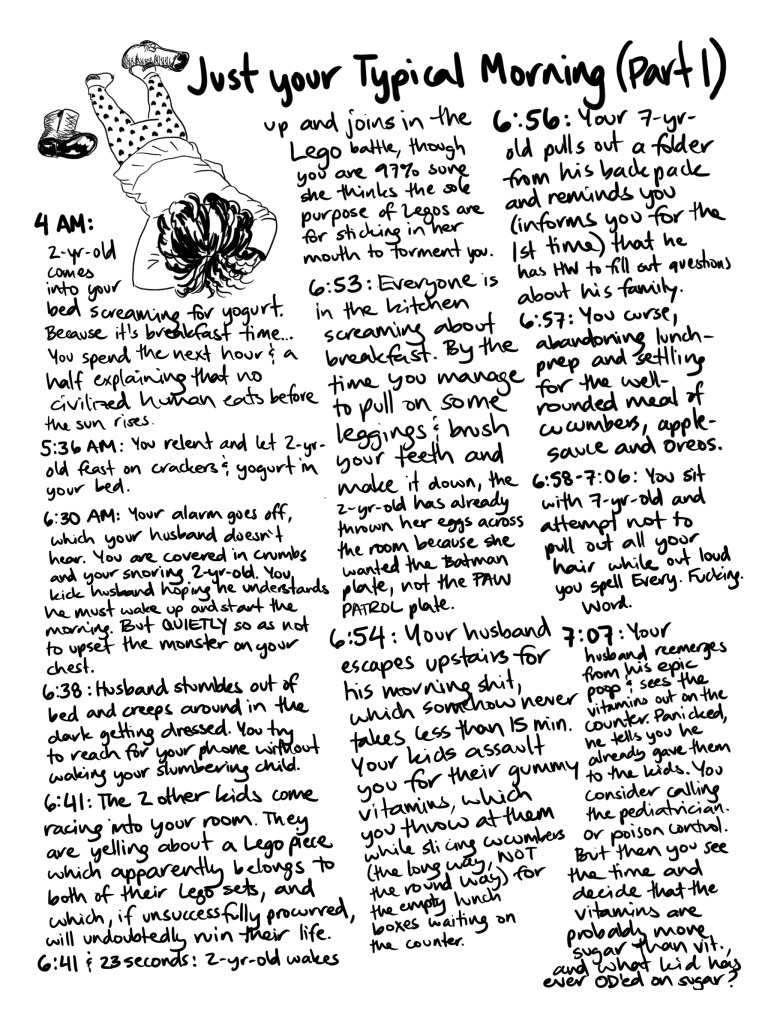 Just your Typical Morning (Part 1)
4 AM:
2-yr-old
comes
into your
bed screaming for yogurt.
Because it's breakfast time...
You spend the next hour & a
half explaining that no
civilized human eats before
the sun rises.
5:36 AM: You relent and let 2-yr-
old feast on crackers & yogurt in
your bed.
6:30 AM: Your alarm goes off,
which your husband doesn't
hear. You are covered in crumbs
and your snoring 2-yr-old. You
kick husband hoping he understands
he must wake up and start the
morning. But QUIETLY so as not
to upset the monster on your
chest.
6:38: Husband stumbles out of
bed and creeps around in the
dark getting dressed. You try
to reach for your phone without
waking your slumbering child.
6:41: The 2 other kids come
racing into your room. They
are yelling about a Lego piece
which apparently belongs to
both of their Lego sets, and
which, if unsuccessfully procurred,
will undoubtedly ruin their life.
6:41 & 23 seconds: 2-yr-old wakes
up and joins in the
Lego battle, though
you are 97% sure
she thinks the sole
purpose of Legos are
for sticking in her
mouth to torment you.
6:53: Everyone is
in the kitchen
screaming about
breakfast. By the
time you manage
to pull on some
leggings & brush
your teeth and
make it down, the
2-yr-old has already
thrown her eggs across
the room because she
wanted the Batman
plate, not the PAW
PATROL plate.
6:54: Your husband
escapes upstairs for
his morning shit,
which somehow never
takes less than 15 min.
Your kids assault
you for their gummy
vitamins, which
you throw at them
while slicing cucumbers
(the long way, NOT
the round way) for
the empty lunch
boxes waiting on
the counter.
6:56: Your 7-yr-
old pulls out a folder
from his backpack
and reminds you
(informs you for the
1st time) that he
has HW to fill out questions
about his family.
6:57: You curse,
abandoning lunch-
prep and settling
for the well-
rounded meal of
cucumbers, apple-
sauce and oreos.
6:58-7:06: You sit
with 7-yr-old and
attempt not to
pull out all your
hair while out loud
you spell Every. Fucking.
Word.
7:07: Your
husband reemerges
from his epic
poop & sees the
vitamins out on the
counter. Panicked,
he tells you he
already gave them
to the kids. You
consider calling
the pediatrician.
or poison control.
But then you see
the time and
decide that the
vitamins are
probably more
sugar than vit.,
and what kid has
ever OD'ed on sugar?